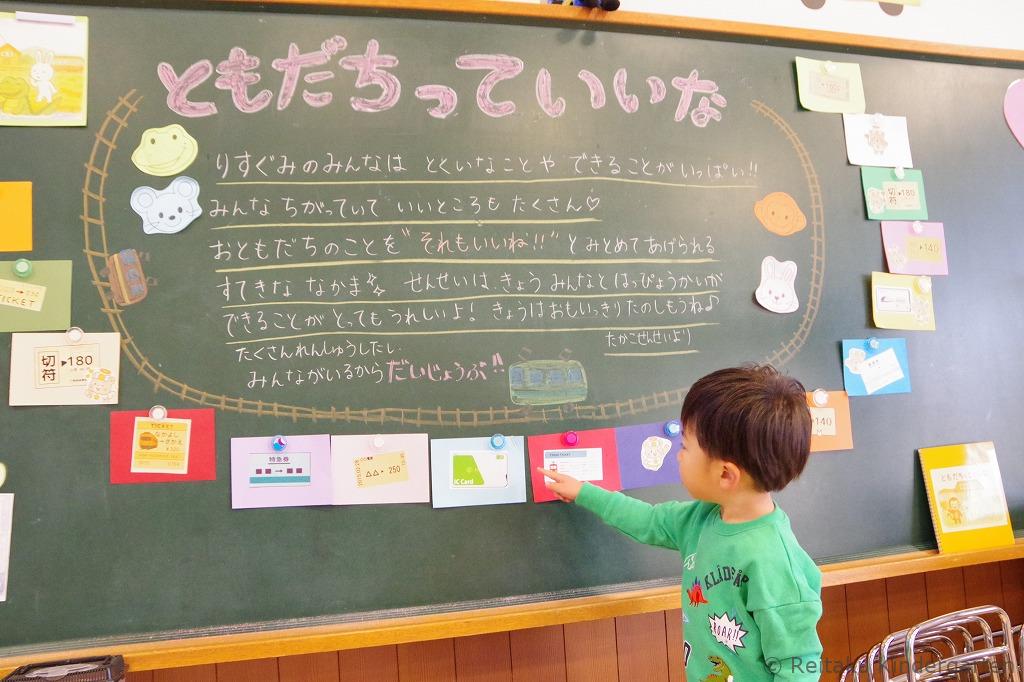 ともだちっていいな
りすぐみのみんなは とくいなことや できることがいっぱい!!
みんな ちがっていて いいところも たくさん♡
おともだちのことを"それもいいね!!"とみとめてあげられる
すてきな なかま せんせいは、きょう みんなとはっぴょうかいが
できることが とってもうれしいよ! きょうはおもいっきりたのしもうね♪
たかこせんせいより
たくさんれんしゅうしたし、
みんながいるからだいじょうぶ!!
TICKET
切符
▶180
TICKET
なかよし
特急券
△△▶250
IC Card
切符
▶180
▶140
▶140
KLÄDSÅP
ROAR!!
© Reitaku Kindergarten